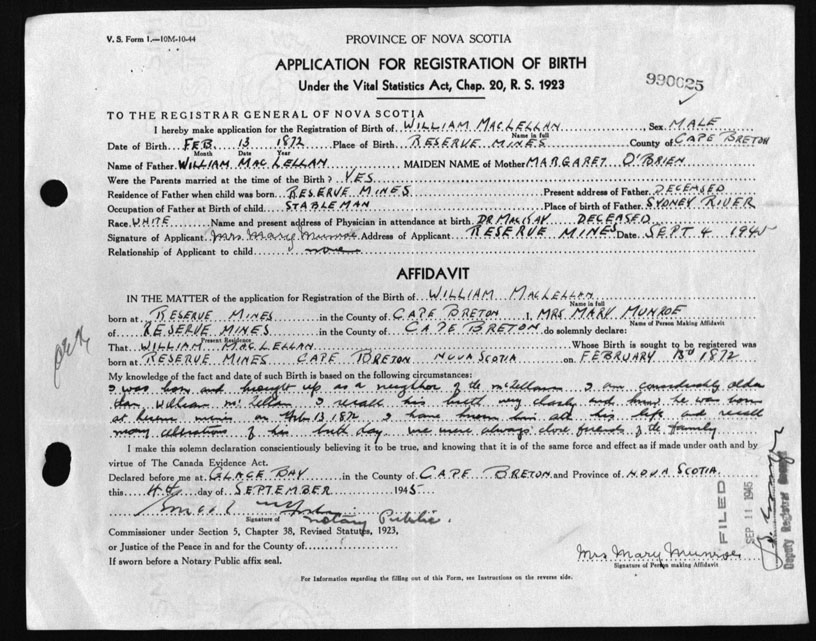 V. S. Form 1.—10M-10-44
PROVINCE OF NOVA SCOTIA
APPLICATION FOR REGISTRATION OF BIRTH
Under the Vital Statistics Act, Chap. 20, R. S. 1923
990625
TO THE REGISTRAR GENERAL OF NOVA SCOTIA
I hereby make application for the Registration of Birth of WILLIAM MACLELLAN Sex MALE
Name in full
Date of Birth FEB. 13 1872 Place of Birth RESERVE MINES County of CAPE BRETON
Month Date Year
Name of Father WILLIAM MACLELLAN MAIDEN NAME of Mother MARGARET O'BRIEN
Were the Parents married at the time of the Birth? YES
Residence of Father when child was born RESERVE MINES Present address of Father DECEASED
Occupation of Father at Birth of child STABLEMAN Place of birth of Father SYDNEY RIVER
Race WHITE Name and present address of Physician in attendance at birth DR MACKAY DECEASED
Signature of Applicant Mrs Mary Munroe Address of Applicant RESERVE MINES Date SEPT 4 1945
Relationship of Applicant to child none
AFFIDAVIT
IN THE MATTER of the application for Registration of the Birth of WILLIAM MACLELLAN
Name in full
born at RESERVE MINES in the County of CAPE BRETON I, MRS MARY MUNROE
Name of Person Making Affidavit
of RESERVE MINES in the County of CAPE BRETON do solemnly declare:
Present Residence
That WILLIAM MACLELLAN Whose Birth is sought to be registered was
born at RESERVE MINES CAPE BRETON NOVA SCOTIA on FEBRUARY 13d 1872
My knowledge of the fact and date of such Birth is based on the following circumstances:
I was born and brought up as a neighbor of the McLellans I am considerably older
than William McLellan I recall his birth very clearly and know he was born
at Reserve Mines on Feb 13 1872 I have known him all his life and recall
many celebrations of his birth day we were always close friends of the family
I make this solemn declaration conscientiously believing it to be true, and knowing that it is of the same force and effect as if made under oath and by
virtue of The Canada Evidence Act.
Declared before me at GLACE BAY in the County of CAPE BRETON and Province of NOVA SCOTIA
this 4th day of SEPTEMBER 1945
Signature of Notary Public.
Commissioner under Section 5, Chapter 38, Revised Statutes, 1923,
or Justice of the Peace in and for the County of
If sworn before a Notary Public affix seal.
Mrs Mary Munroe
Signature of Person making Affidavit
For Information regarding the filling out of this Form, see Instructions on the reverse side.
FILED
SEP 11 1945
Deputy Registrar General